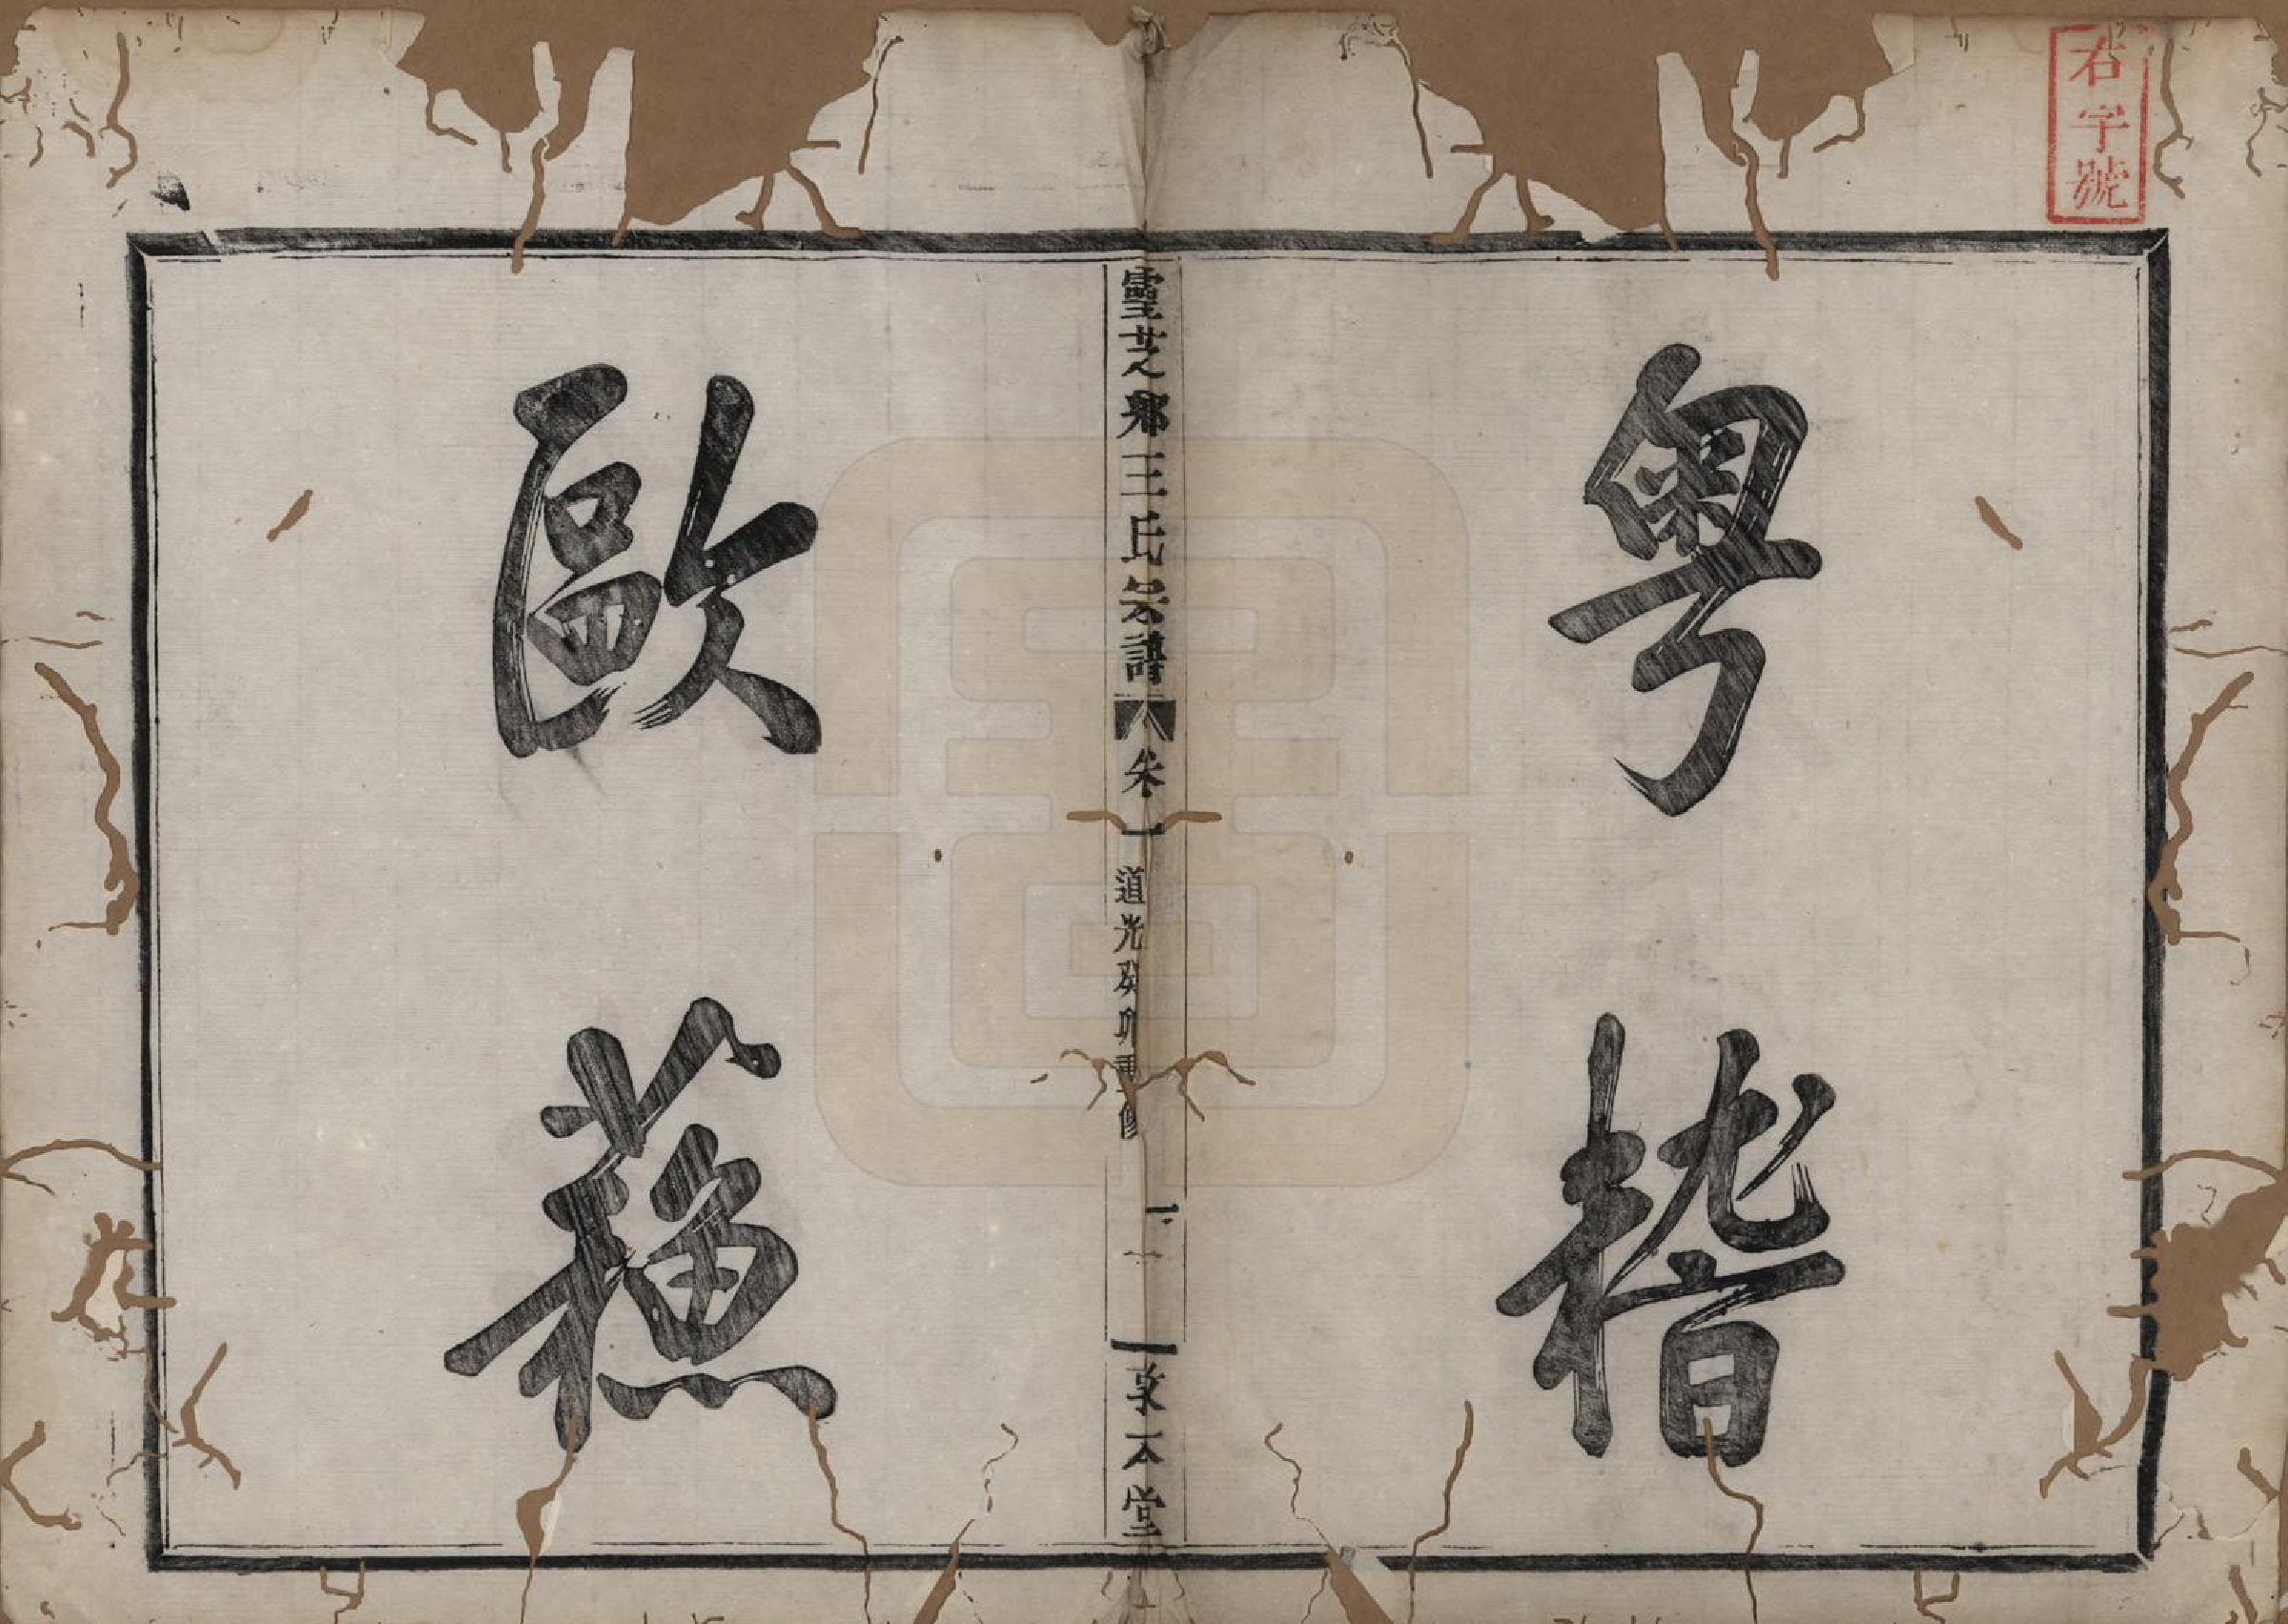 右字號
粤稽
靈芝鄉王氏宗譜
卷一
道光癸卯重修
一
敦本堂
歐蘇